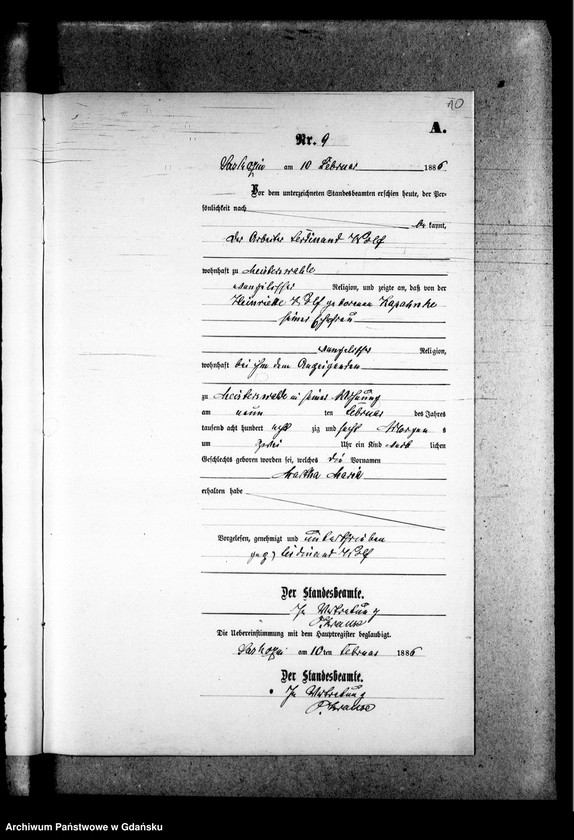 10
A.
Nr. 9
Saskozin am 10 Februar 1886
Vor dem unterzeichneten Standesbeamten erschien heute, der Per-
sönlichkeit nach
kannt,
der Arbeiter Ferdinand Wolf
wohnhaft zu Meisterswalde
evangelischer Religion, und zeigte an, daß von der
Henriette Wolf geborenen
seiner Ehefrau
evangelischer Religion,
wohnhaft bei ihm dem Anzeigenden
zu Meisterswalde in seiner Wohnung
am neun ten Februar des Jahres
tausend acht hundert acht zig und sechs Morgen s
um zwei Uhr ein Kind weib lichen
Geschlechts geboren worden sei, welches die Vornamen
Martha Maria
erhalten habe
Vorgelesen, genehmigt und unterschrieben
gez) Ferdinand Wolf
Der Standesbeamte.
In Vertretung
P. Krause
Die Uebereinstimmung mit dem Hauptregister beglaubigt.
Saskozin am 10ten Februar 1886
Der Standesbeamte.
In Vertretung
P. Krause
Archiwum Państwowe w Gdańsku